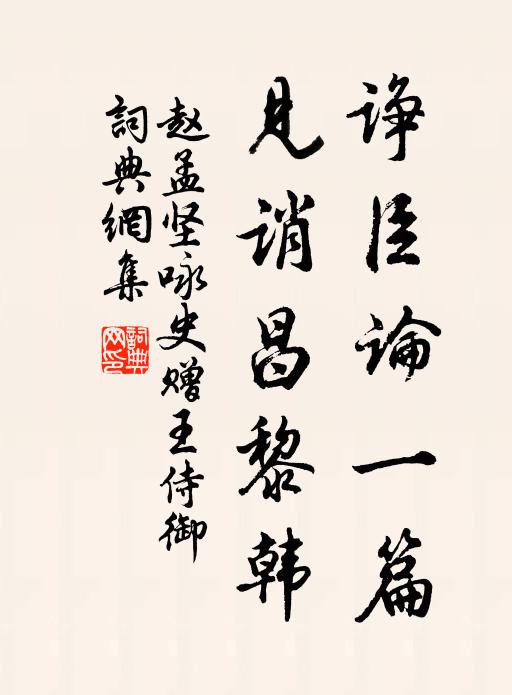 诤臣论一篇
见诮昌黎韩
赵孟坚咏史赠王侍御
詞典網集
詞典网印